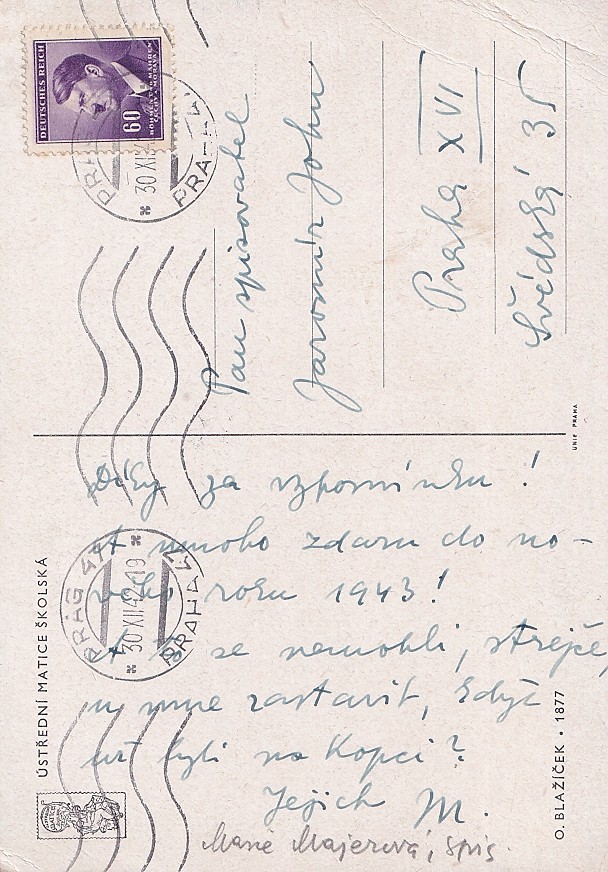 DEUTSCHES REICH
60
BÖHMEN UND MÄHREN
ČECHY A MORAVA
30 XII
PRAHA
Pan spisovatel
Jaromír John
Praha XVI
Švédská 35
UNIE PRAHA
Díky za vzpomínku!
A mnoho zdaru do no-
vého roku 1943!
A to se nemohli, strejče,
u mne zastavit, když
už byli na Kopci?
Jejich M.
Marie Majerová, spis.
PRAG 41
30 XII 42-19
PRAHA 41
ÚSTŘEDNÍ MATICE ŠKOLSKÁ
O. BLAŽÍČEK • 1877